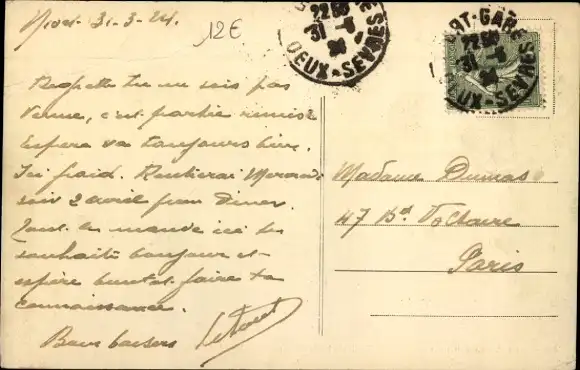 Niort 31-3-24.
12€
Regrette tu ne sois pas
venue, c'est partie remise
Espère va toujours bien.
Ici froid. Rentrerai Mercredi
soir 2 avril pour Diner.
Tout le monde ici te
souhaite bonjour et
espère bientot faire ta
connaissance.
Bons baisers
Madame Dumas
47 Bd Voltaire
Paris
22 50
31 -3
24
DEUX-SEVRES
RT-GARE
22 50
31 -3
24
DEUX-SEVRES